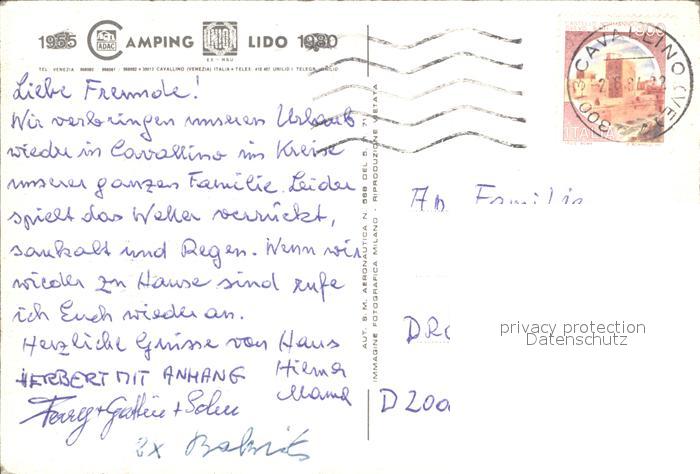 1955 CAMPING LIDO 1980
ADAC
TEL. VENEZIA
30013 CAVALLINO (VENEZIA) ITALIA
Liebe Freunde!
Wir verbringen unseren Urlaub
wieder in Cavallino im Kreise
unserer ganzen Familie. Leider
spielt das Wetter verrückt,
saukalt und Regen. Wenn wir
wieder zu Hause sind rufe
ich Euch wieder an.
Herzliche Grüsse von Hans
HERBERT MIT ANHANG Hilma
Mama
Ferry + Gattin + Sohn
2x
AUT. S. M. AERONAUTICA N. 568 DEL 5.
IMMAGINE FOTOGRAFICA MILANO - RIPRODUZIONE VIETATA
CAVALLINO (VE)
ITALIA
An Familie
privacy protection
Datenschutz
D 200